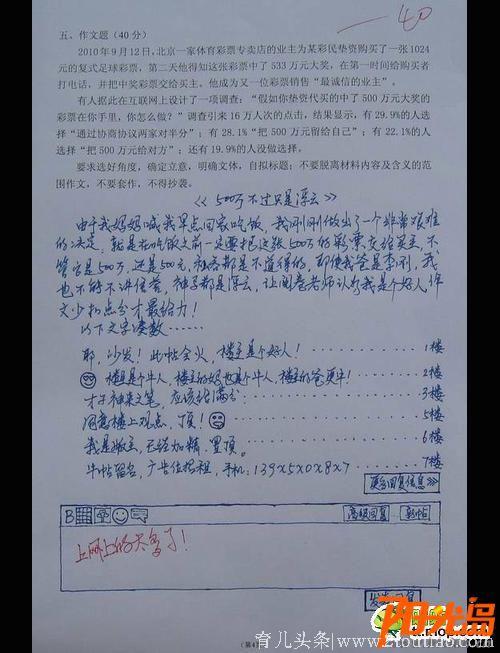 -40
五、作文题（40分）
2010年9月12日,北京一家体育彩票专卖店的业主为某彩民垫资购买了一张1024
元的复式足球彩票，第二天他得知这张彩票中了533万元大奖，在第一时间给购买者
打电话，并把中奖彩票交给买主。他成为又一位彩票销售“最诚信的业主”。
有人据此在互联网上设计了一项调查：“假如你垫资代买的中了500万元大奖的
彩票在你手里，你怎么做？”调查引来16万人次的点击，结果显示，有29.9%的人选
择“通过协商协议两家对半分”；有28.1%“把500万元留给自己”；有22.1%的人
选择“把500万元给对方”；还有19.9%的人没做选择。
要求选好角度，确定立意，明确文体，自拟标题；不要脱离材料内容及含义的范
围作文，不要套作，不得抄袭。
《500万不过只是浮云》
由于我妈妈喊我早点回家吃饭，我刚刚做出了一个非常艰难
的决定，就是在吃饭之前一定要把这张500万的彩票交给买主，不
管它是500万，还是500元，私吞都是不道德的，即使我爸是李刚，我
也不能不讲信誉，神马都是浮云，让阅卷老师认为我是个好人，作
文少扣点分才最给力！
以下文字凑数……
耶，沙发！此帖会火，楼主是个好人！ 1楼
楼主是个牛人，楼主的妈也是个牛人，楼主的爸更牛！ 2楼
才子神来之笔，应该给满分： 3楼
同意楼上观点，顶！ 5楼
我是版主，已经加精，置顶。 6楼
牛帖留名，广告位招租，手机：139x5x0x8x7 7楼
更多回复信息>>
B
高级回复 新帖
上网上的太多了！
发表回复
(第4
育儿头条/www.2toutiao.com